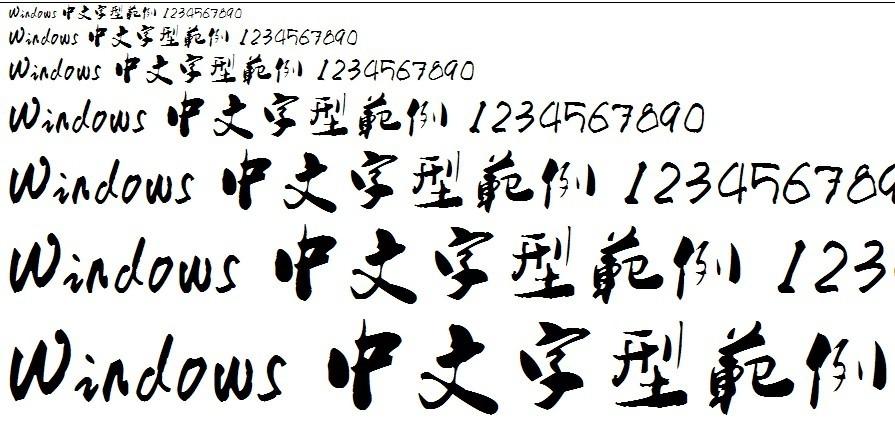 Windows 中文字型範例 1234567890
Windows 中文字型範例 1234567890
Windows 中文字型範例 1234567890
Windows 中文字型範例 1234567890
Windows 中文字型範例 123456789
Windows 中文字型範例 123
Windows 中文字型範例